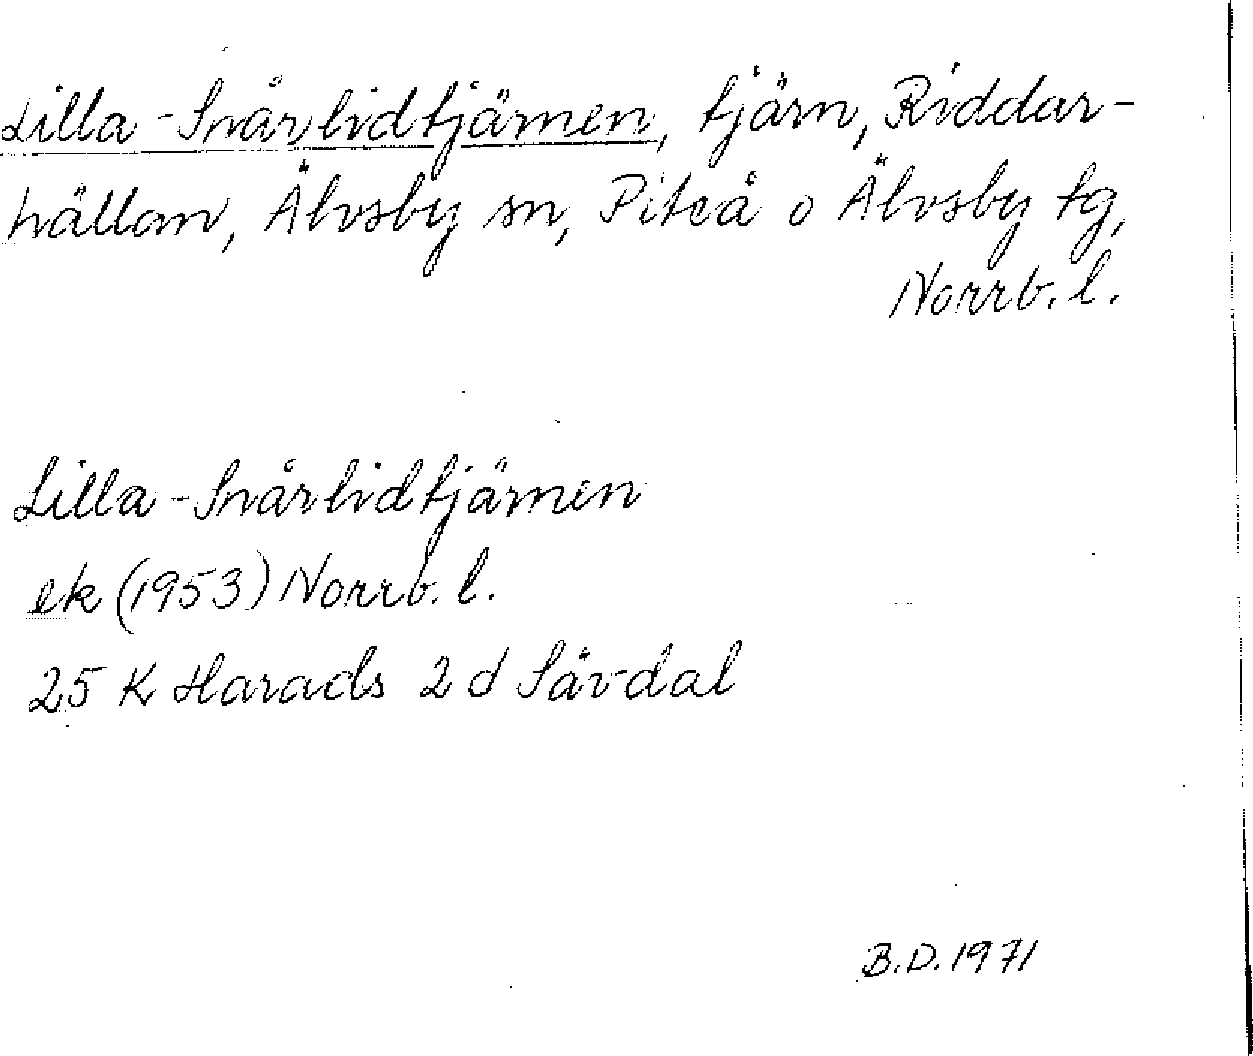 Lilla-Snårlidtjärnen, tjärn, Riddar-
hällan, Älvsby sn, Piteå o Älvsby tg,
Norrb. l.
Lilla-Snårlidtjärnen
ek (1953) Norrb. l.
25 K Harads 2 d Sävdal
B.D. 1971